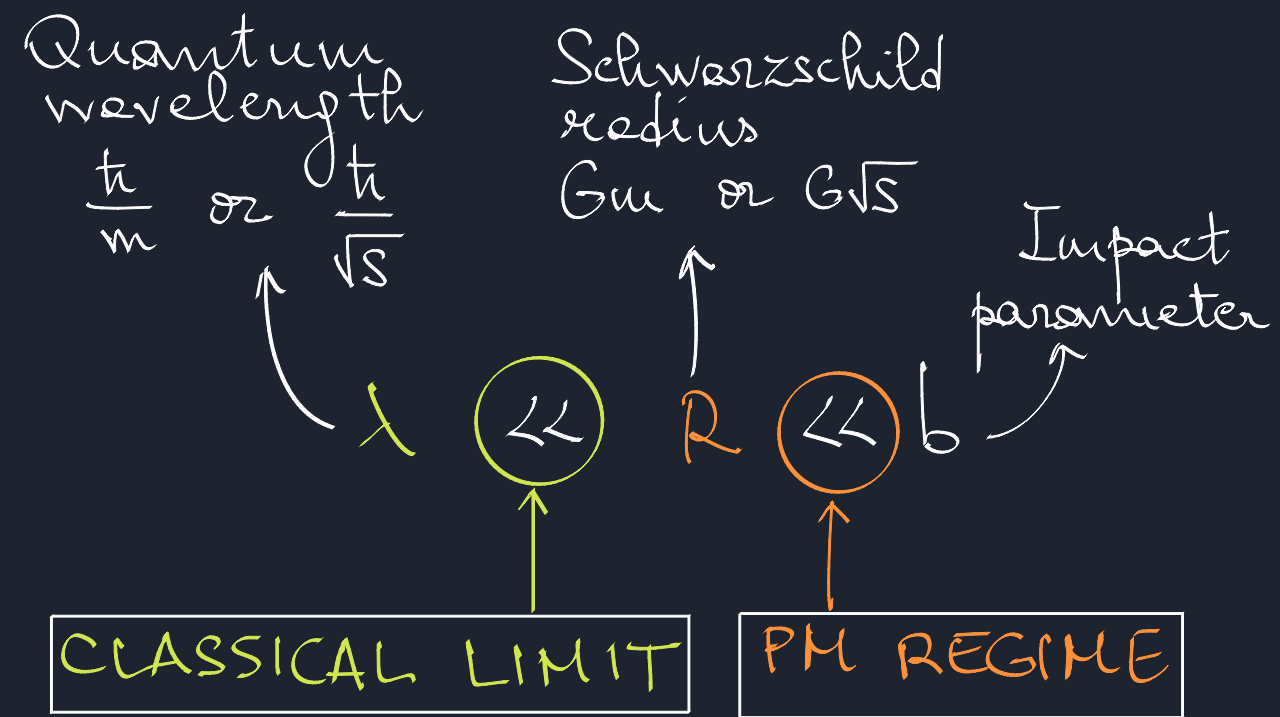 Quantum
wavelength
ħ/m or ħ/√s
Schwarzschild
radius
Gm or G√s
Impact
parameter
λ << R << b
CLASSICAL LIMIT
PM REGIME